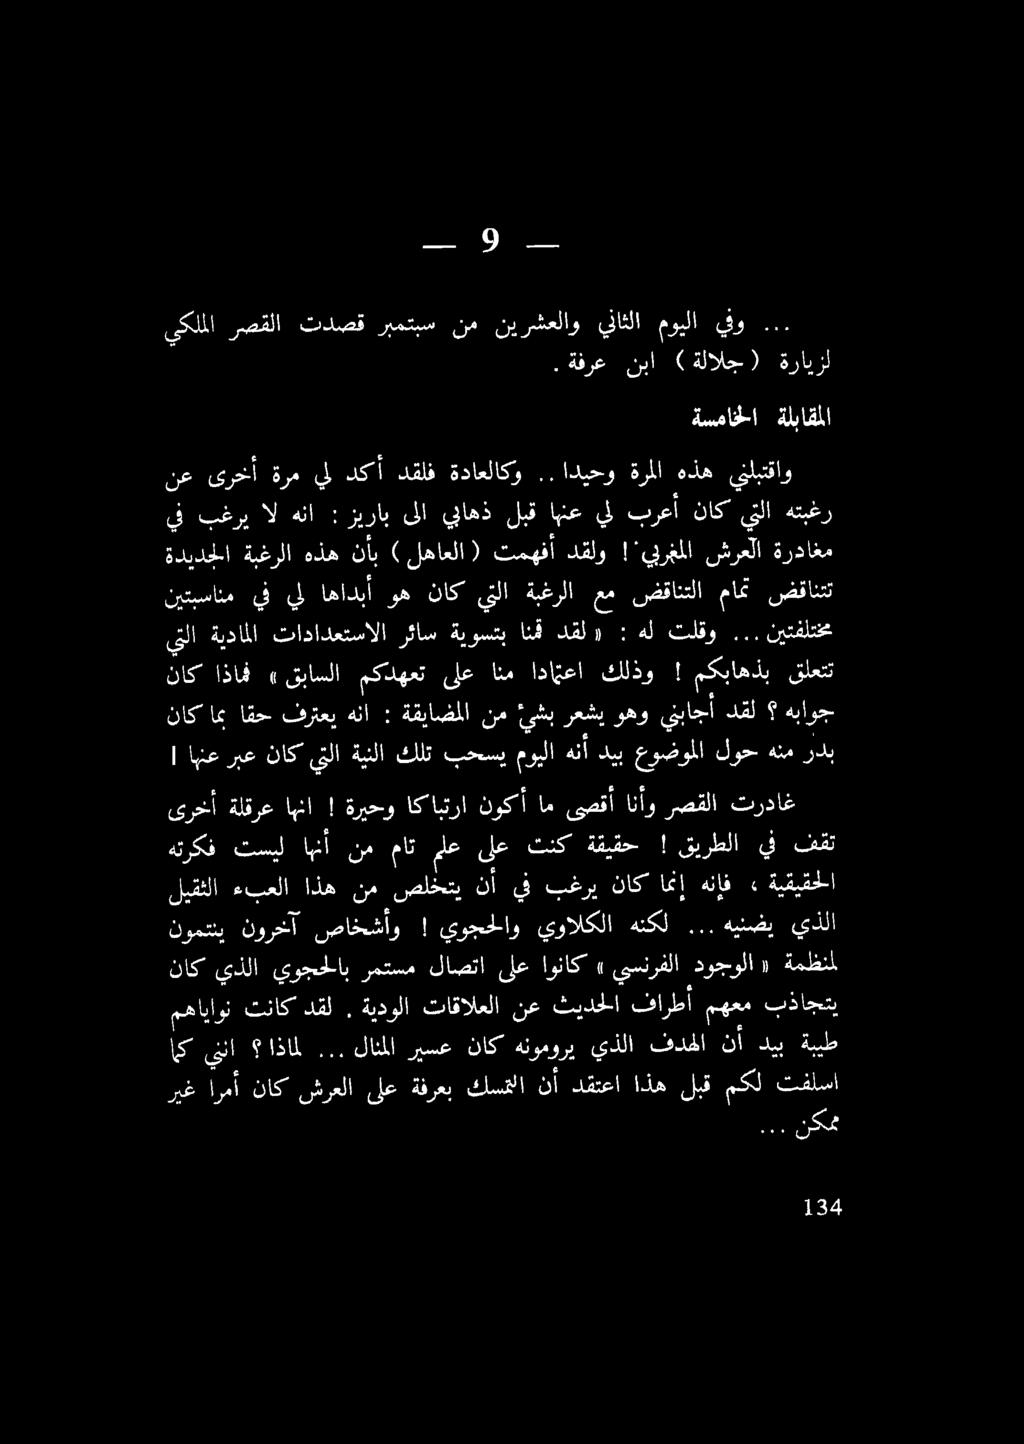 — 9 —
... وفي اليوم الثاني والعشرين من سبتمبر قصدت القصر الملكي
لزيارة (جلالة) ابن عرفة .
المقابلة الخامسة
واقتبلني هذه المرة وحيدا .. وكالعادة فلقد أكد لي مرة أخرى عن
رغبته التي كان أعرب لي عنها قبل ذهابي الى باريز : انه لا يرغب في
مغادرة العرش المغربي ! ولقد أفهمت (العاهل) بأن هذه الرغبة الجديدة
تتناقض تمام التناقض مع الرغبة التي كان هو أبداها لي في مناسبتين
مختلفتين ... وقلت له : « لقد قمنا بتسوية سائر الاستعدادات المادية التي
تتعلق بذهابكم ! وذلك اعتمادا منا على تعهدكم السابق » فماذا كان
جوابه ؟ لقد أجابني وهو يشعر بشيء من المضايقة : انه يعترف حقا بما كان
بدر منه حول الموضوع بيد أنه اليوم يسحب تلك النية التي كان عبر عنها !
غادرت القصر وأنا أقصى ما أكون ارتباكا وحيرة ! انها عرقلة أخرى
تقف في الطريق ! حقيقة كنت على علم تام من أنها ليست فكرته
الحقيقية ، فإنه إنما كان يرغب في أن يتخلص من هذا العبء الثقيل
الذي يضنيه ... لكنه الكلاوي والحجوي ! وأشخاص آخرون ينتمون
لمنظمة « الوجود الفرنسي » كانوا على اتصال مستمر بالحجوي الذي كان
يتجاذب معهم أطراف الحديث عن العلاقات الودية . لقد كانت نواياهم
طيبة بيد أن الهدف الذي يرومونه كان عسير المنال ... لماذا ؟ انني كما
اسلفت لكم قبل هذا اعتقد أن التمسك بعرفة على العرش كان أمرا غير
ممكن ...
134